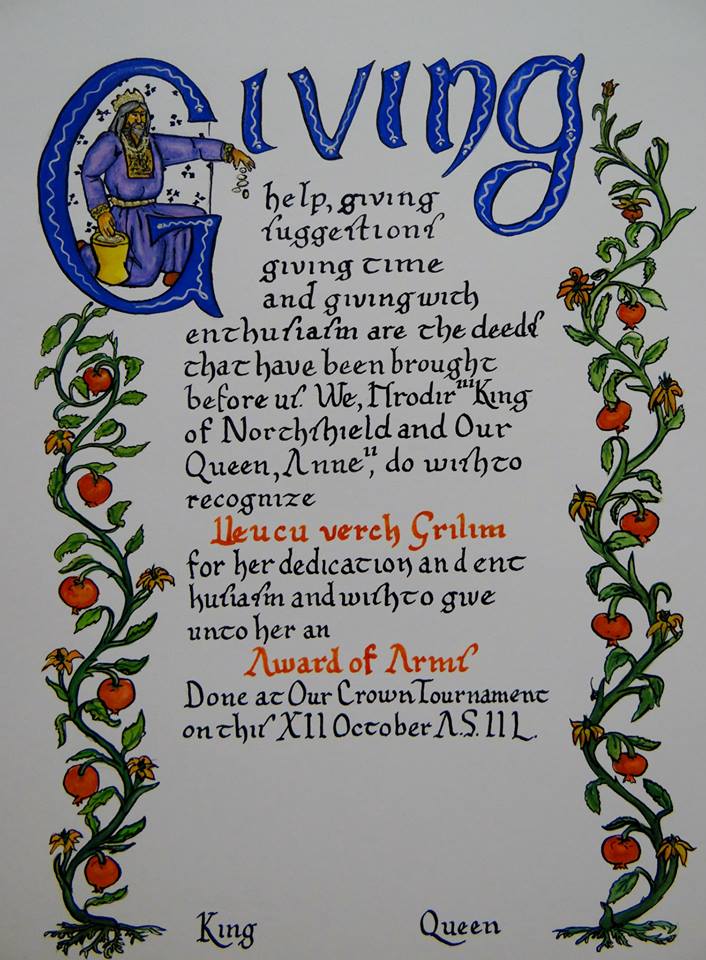 Giving
help, giving
suggestions
giving time
and giving with
enthusiasm are the deeds
that have been brought
before us. We, Hrodir III King
of Northshield and Our
Queen, Anne II, do wish to
recognize
Lleucu verch Grilim
for her dedication and ent
husiasm and wish to give
unto her an
Award of Arms
Done at Our Crown Tournament
on this XII October A.S. IIL.
King
Queen